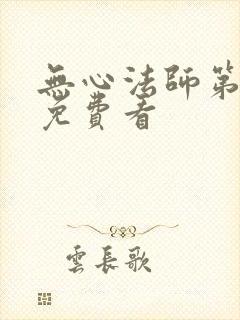 無心法師第
免費看
雲長歌